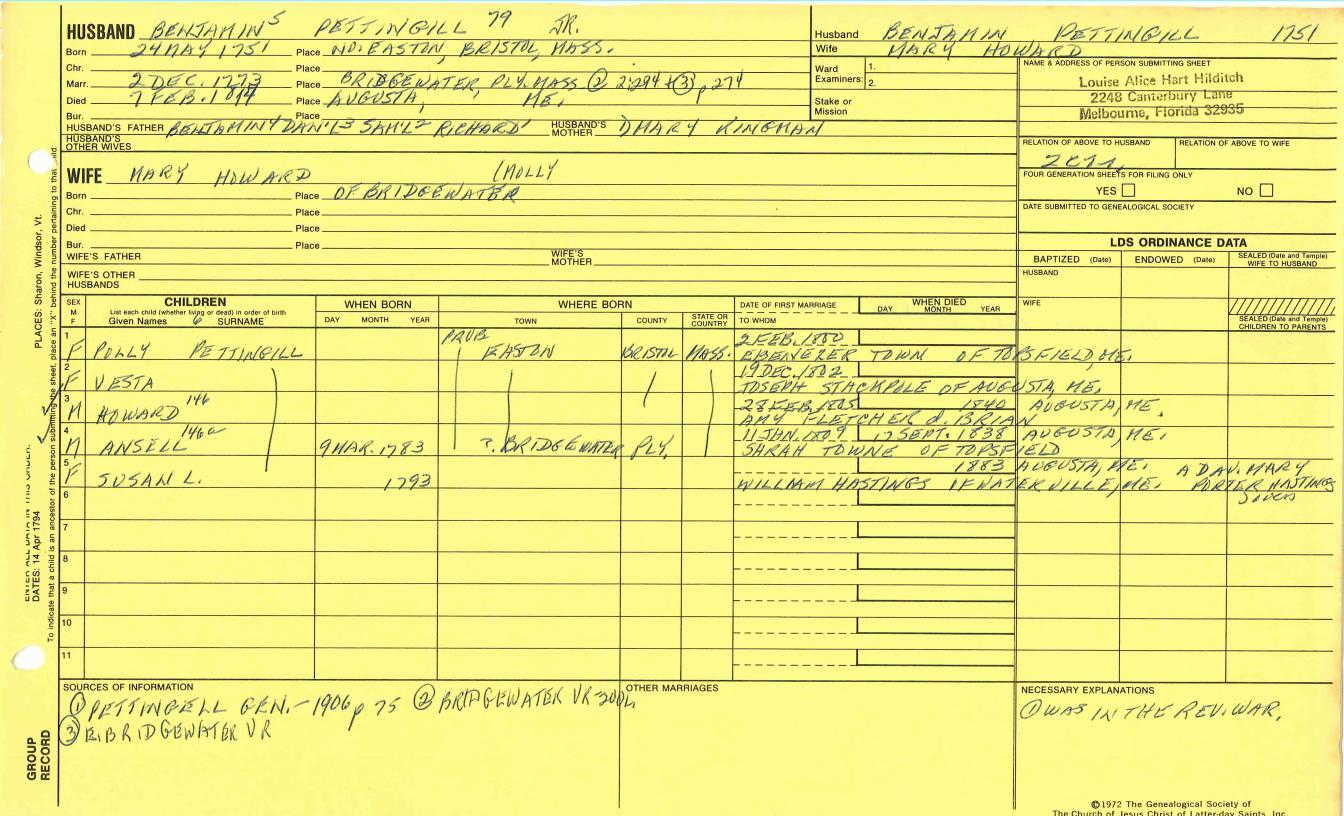 HUSBAND BENJAMIN 5 PETTINGILL 79 JR.
Born 24 MAY 1751 Place NO. EASTON, BRISTOL, MASS.
Chr. Place
Marr. 2 DEC. 1773 Place BRIDGEWATER, PLY. MASS ② 2:294 + ③ p 274
Died 7 FEB. Place AUGUSTA, ME.
Bur. Place
HUSBAND'S FATHER BENJAMIN 4 DAN'L 3 SAM'L 2 RICHARD 1 HUSBAND'S MOTHER MARY KINGMAN
HUSBAND'S OTHER WIVES
Husband BENJAMIN PETTINGILL 1751
Wife MARY HOWARD
Ward Examiners: 1.
2.
Stake or Mission
NAME & ADDRESS OF PERSON SUBMITTING SHEET
Louise Alice Hart Hilditch
2248 Canterbury Lane
Melbourne, Florida 32935
RELATION OF ABOVE TO HUSBAND RELATION OF ABOVE TO WIFE
FOUR GENERATION SHEETS FOR FILING ONLY
YES NO
DATE SUBMITTED TO GENEALOGICAL SOCIETY
WIFE MARY HOWARD (MOLLY
Born Place OF BRIDGEWATER
Chr. Place
Died Place
Bur. Place
WIFE'S FATHER WIFE'S MOTHER
WIFE'S OTHER HUSBANDS
LDS ORDINANCE DATA
BAPTIZED (Date) ENDOWED (Date) SEALED (Date and Temple) WIFE TO HUSBAND
HUSBAND
WIFE
SEALED (Date and Temple) CHILDREN TO PARENTS
SEX M F CHILDREN WHEN BORN WHERE BORN DATE OF FIRST MARRIAGE WHEN DIED
List each child (whether living or dead) in order of birth
Given Names 6 SURNAME DAY MONTH YEAR TOWN COUNTY STATE OR COUNTRY TO WHOM DAY MONTH YEAR
1 PROB 2 FEB. 1800
F POLLY PETTINGILL EASTON BRISTOL MASS. EBENEZER TOWN OF TOPSFIELD, ME.
2 19 DEC. 1802
F VESTA JOSEPH STACKPOLE OF AUGUSTA, ME.
3 28 FEB. 1805 1840 AUGUSTA, ME.
M HOWARD 146 AMY FLETCHER d. BRIAN
4 11 JAN. 1809 17 SEPT. 1838 AUGUSTA, ME.
M ANSELL 146a 9 MAR. 1783 ?. BRIDGEWATER PLY. SARAH TOWNE OF TOPSFIELD
5 1883 AUGUSTA, ME. A DAU. MARY
F SUSAN L. 1793 WILLIAM HASTINGS OF WATERVILLE, ME. PORTER HASTINGS
6
7
8
9
10
11
SOURCES OF INFORMATION
① PETTINGELL GEN. - 1906 p 75 ② BRIDGEWATER VR
③ E. BRIDGEWATER VR
OTHER MARRIAGES
NECESSARY EXPLANATIONS
① WAS IN THE REV. WAR.
©1972 The Genealogical Society of
The Church of Jesus Christ of Latter-day Saints, Inc.
GROUP RECORD
ENTER ALL DATA IN THIS ORDER:
DATES: 14 Apr 1794 PLACES: Sharon, Windsor, Vt.
To indicate that a child is an ancestor of the person submitting the sheet, place an "X" behind the number pertaining to that